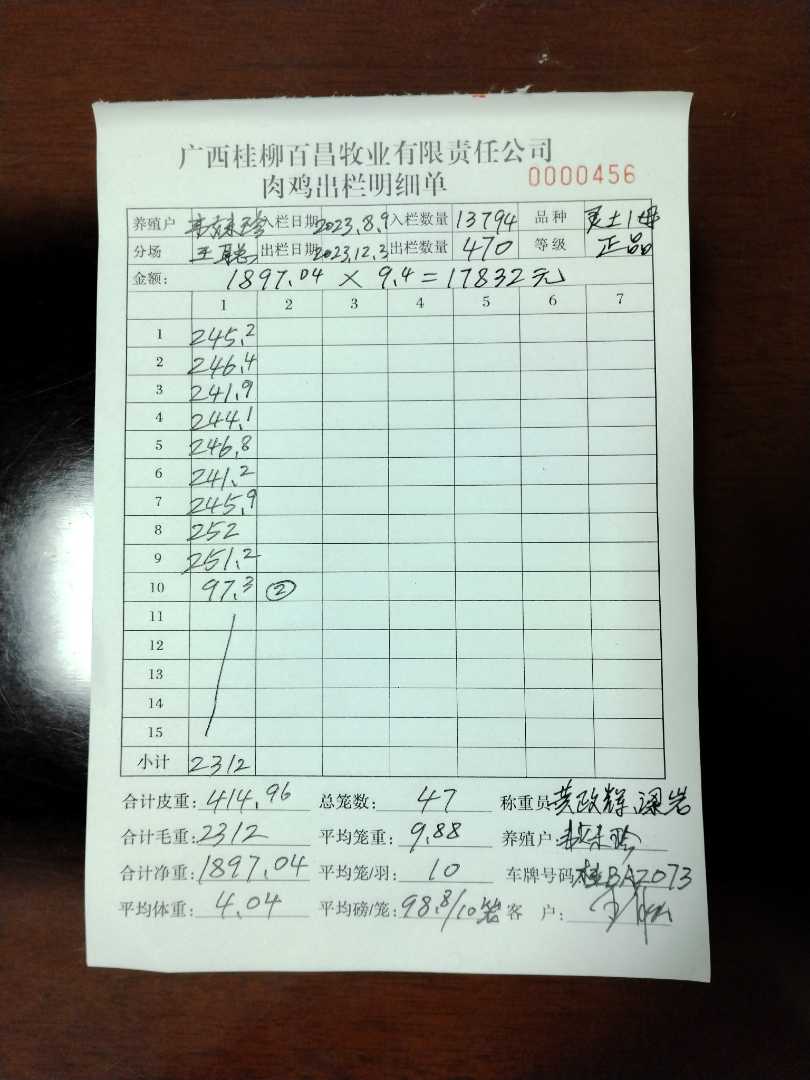 广西桂柳百昌牧业有限责任公司
肉鸡出栏明细单 0000456
养殖户 入栏日期 2023.8.9 入栏数量 13794 品种 灵土1母
分场 王聪 出栏日期 2023.12.3 出栏数量 470 等级 正品
金额: 1897.04 × 9.4 = 17832元
1 2 3 4 5 6 7
1 245.2
2 246.4
3 241.9
4 244.1
5 246.8
6 241.2
7 245.9
8 252
9 251.2
10 97.3 ②
11
12
13
14
15
小计 2312
合计皮重: 414.96 总笼数: 47 称重员 黄政辉 梁岩
合计毛重: 2312 平均笼重: 9.88 养殖户:
合计净重: 1897.04 平均笼/羽: 10 车牌号码 桂BA2073
平均体重: 4.04 平均磅/笼: 98.8/10笼 客 户: